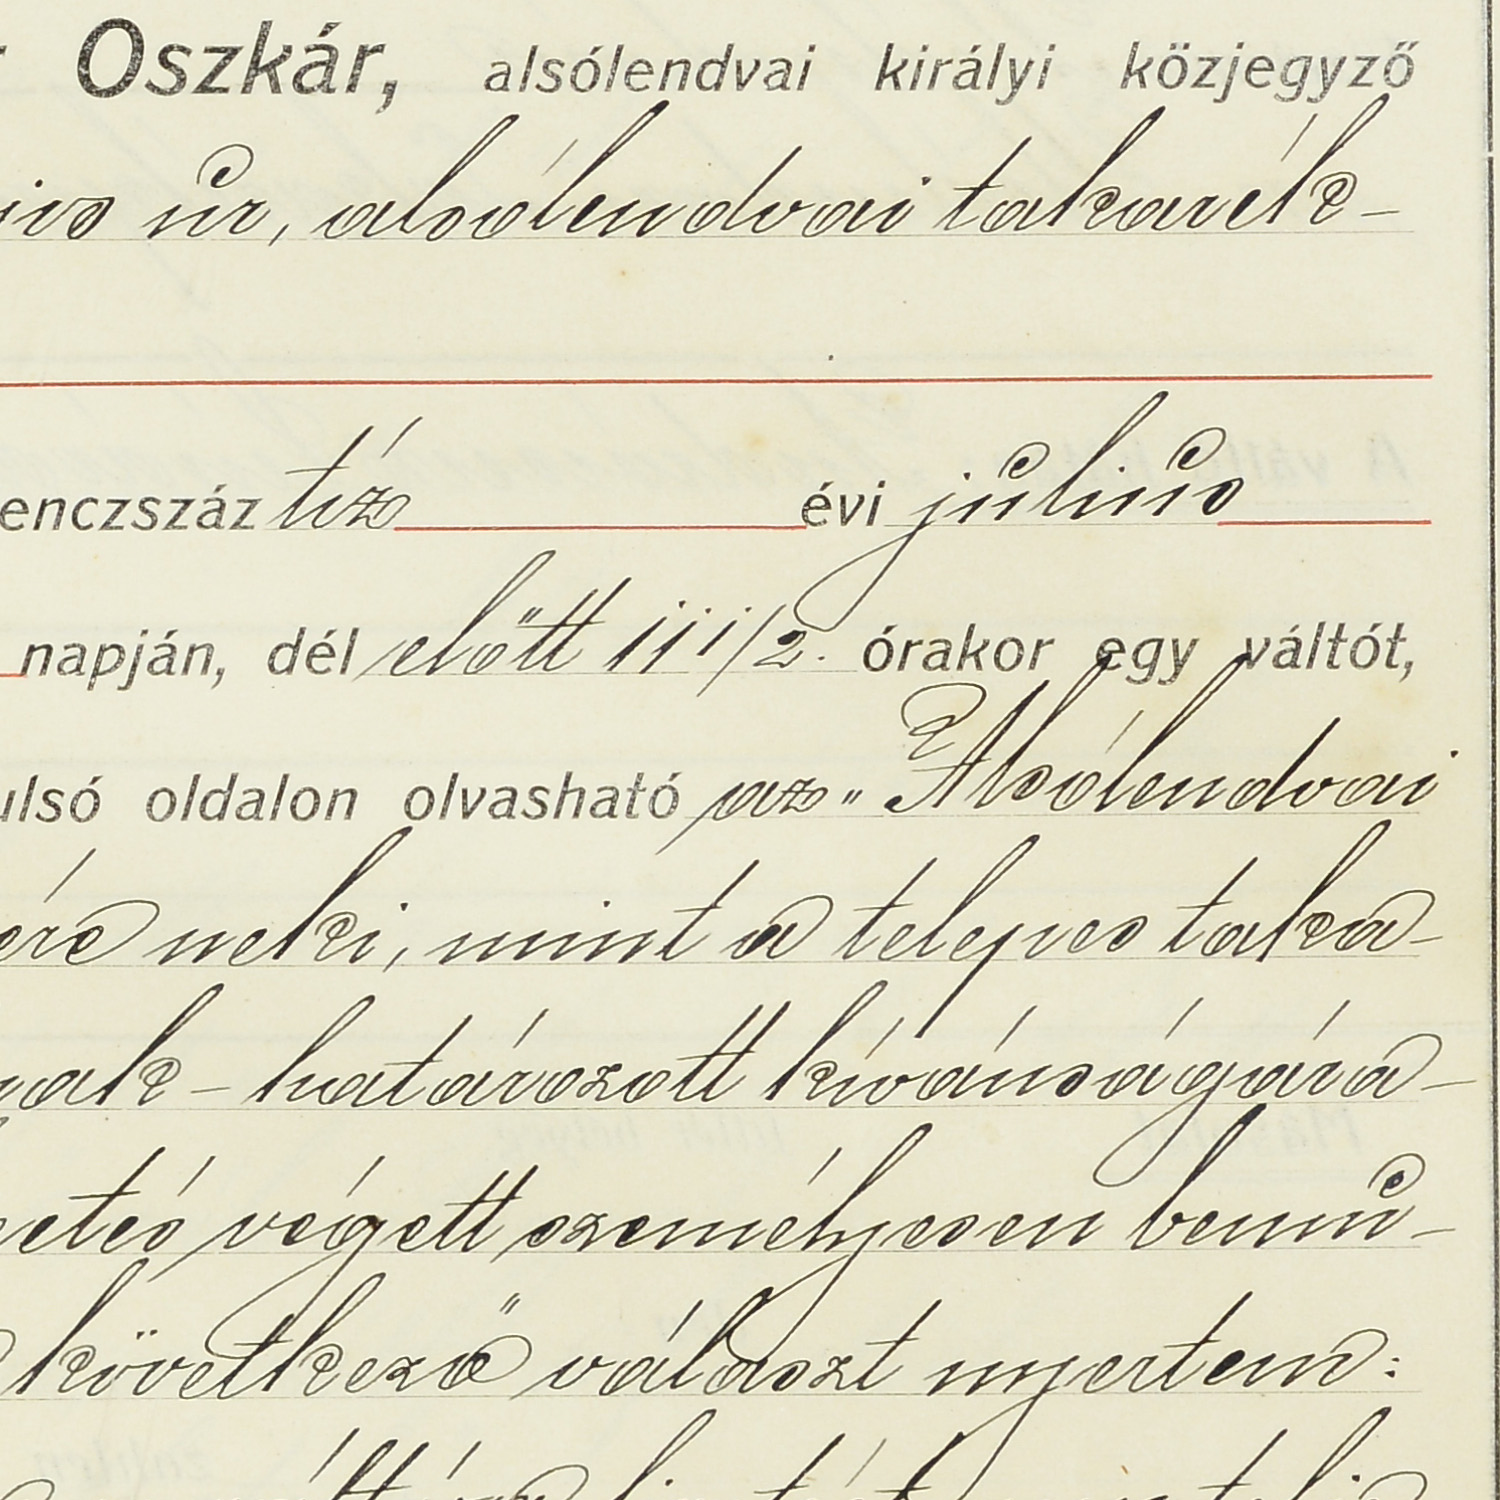 Oszkár, alsólendvai királyi közjegyző
úr, alsólendvai takarék-
enczszáz tíz évi július
napján, dél előtt 11 1/2. órakor egy váltót,
ulsó oldalon olvasható az „Alsólendvai
ére neki, mint a telepes taka-
nak - határozott kívánságára -
netés végett személyesen bemu-
következő választ nyertem: